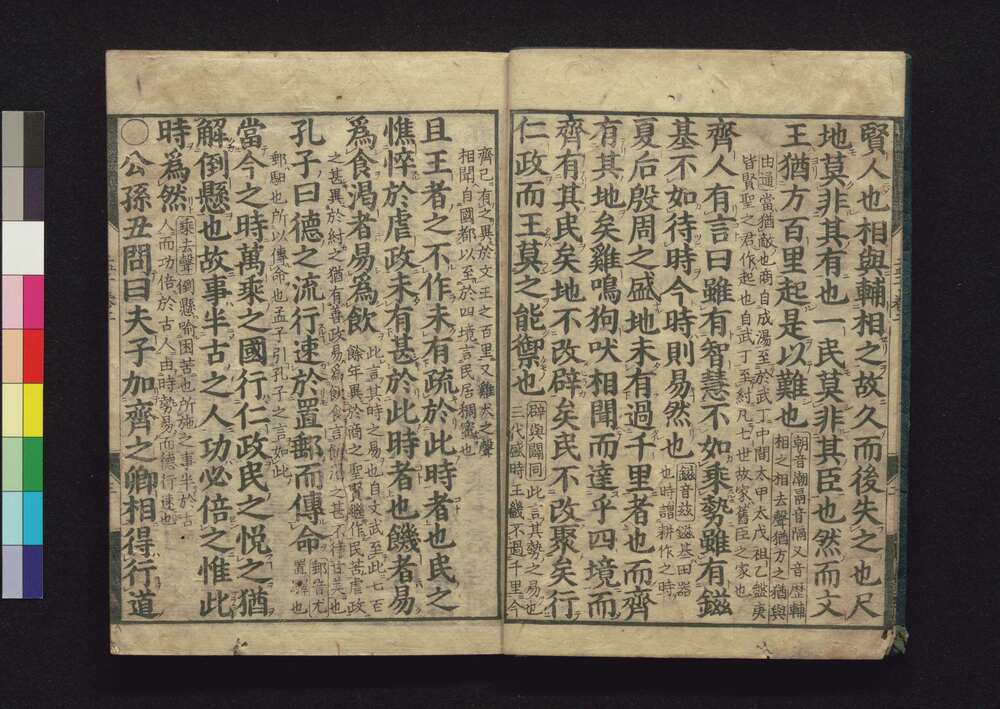 賢人也相與輔相之故久而後失之也尺
地莫非其有也一民莫非其臣也然而文
王猶方百里起是以難也
朝音潮鬲音隔又音歴輔
相之相去聲猶方之猶與
由通當猶敵也商自成湯至於武丁中間太甲太戊祖乙盤庚
皆賢聖之君作起也自武丁至紂凡七世故家舊臣之家也
齊人有言曰雖有智慧不如乘勢雖有鎡
基不如待時今時則易然也
鎡音兹鎡基田器
也時謂耕作之時
夏后殷周之盛地未有過千里者也而齊
有其地矣雞鳴狗吠相聞而達乎四境而
齊有其民矣地不改辟矣民不改聚矣行
仁政而王莫之能禦也
辟與闢同此言其勢之易也
三代盛時王畿不過千里今
齊已有之異於文王之百里又雞犬之聲
相聞自國都以至於四境言民居稠密也
且王者之不作未有疏於此時者也民之
憔悴於虐政未有甚於此時者也饑者易
爲食渴者易爲飲
此言其時之易也自文武至此七百
餘年異於商之賢聖繼作民苦虐政
之甚異於紂之猶有善政易爲飲食言飢渴之甚不待甘美也
孔子曰德之流行速於置郵而傳命
郵音尤
置驛也
郵馹也所以傳命也孟子引孔子之言如此
當今之時萬乘之國行仁政民之悦之猶
解倒懸也故事半古之人功必倍之惟此
時爲然
乘去聲倒懸喻困苦也所施之事半於古
人而功倍於古人由時勢易而德行速也
○公孫丑問曰夫子加齊之卿相得行道